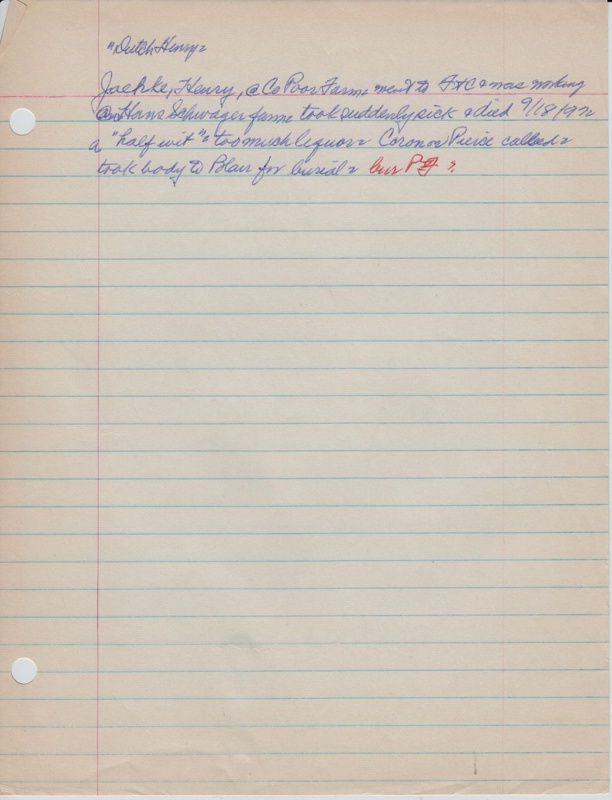 "Dutch Henry"
Jaehke, Henry, @ Co Poor Farm went to Ft C & was working
on Hans Schwager farm took suddenly sick & died 9/18/92
a "half wit" too much liquor Coroner Pierce called &
took body to Blair for burial bur PF ?